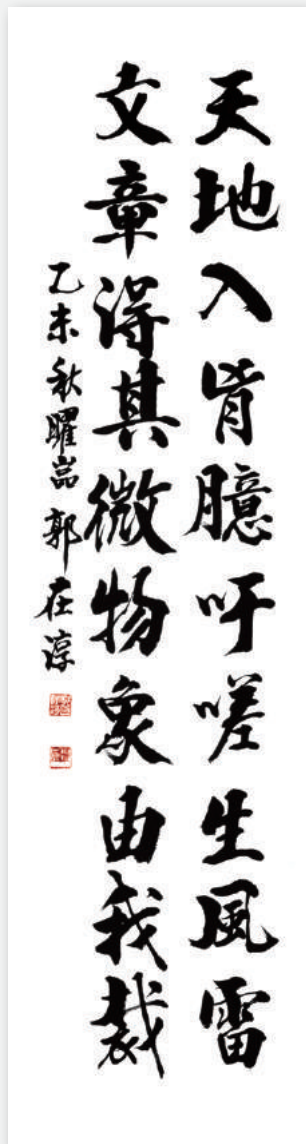 天地入胷臆吁嗟生風雷
文章得其微物象由我裁
乙未秋曜嵓郭在淳